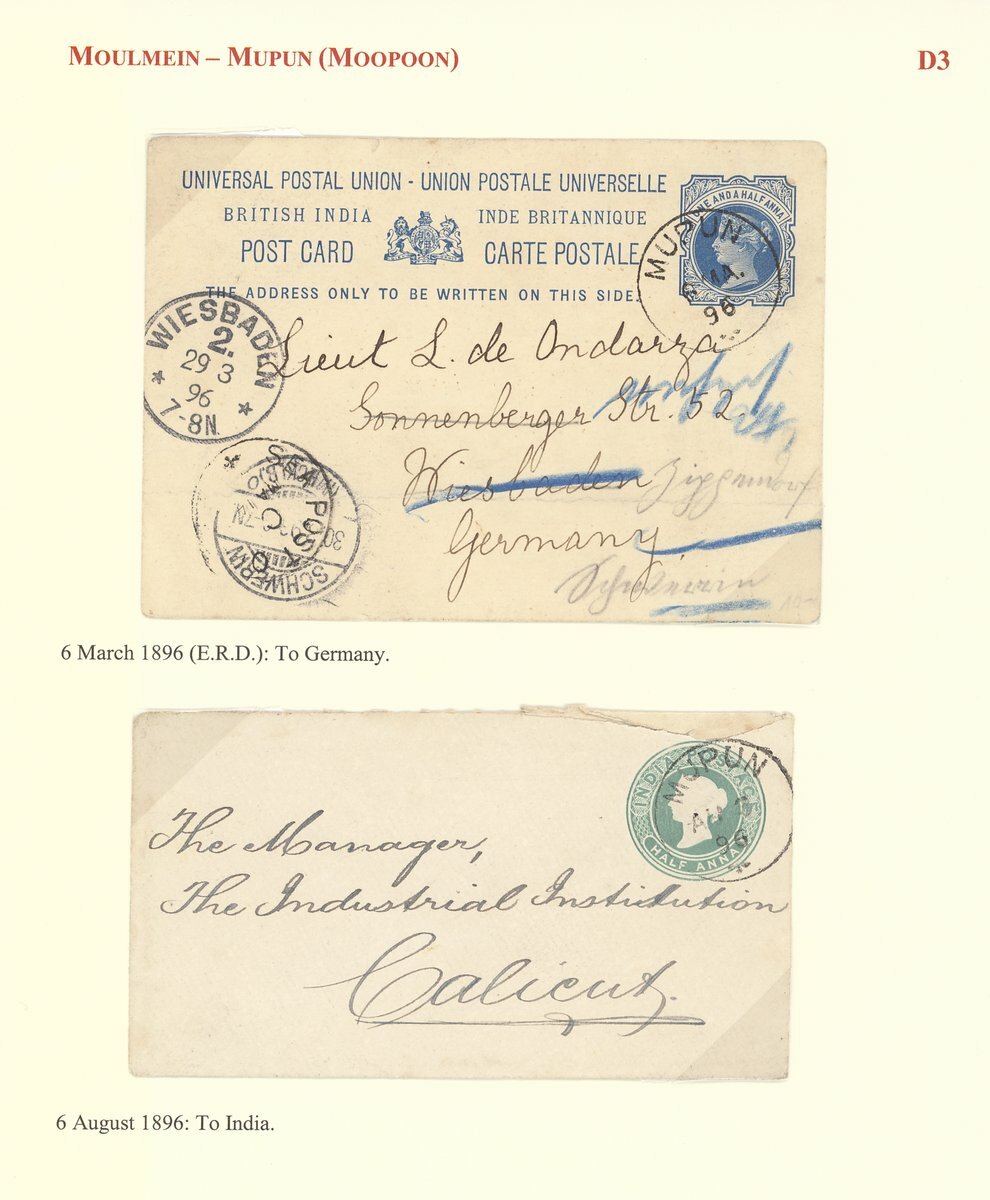 MOULMEIN – MUPUN (MOOPOON)
D3
UNIVERSAL POSTAL UNION - UNION POSTALE UNIVERSELLE
BRITISH INDIA
INDE BRITANNIQUE
POST CARD
CARTE POSTALE
THE ADDRESS ONLY TO BE WRITTEN ON THIS SIDE.
ONE AND A HALF ANNA
MUPUN
MA.
96
WIESBADEN
2.
29 3
96
7-8N.
Lieut L. de Ondarza
Sonnenberger Str. 52
Wiesbaden Zippendorf
Germany
Schwerin
SEA
POST
SCHWERIN
30
6 March 1896 (E.R.D.): To Germany.
INDIA POSTAGE
HALF ANNA
MUPUN
AU
96
The Manager,
The Industrial Institution
Calicut.
6 August 1896: To India.